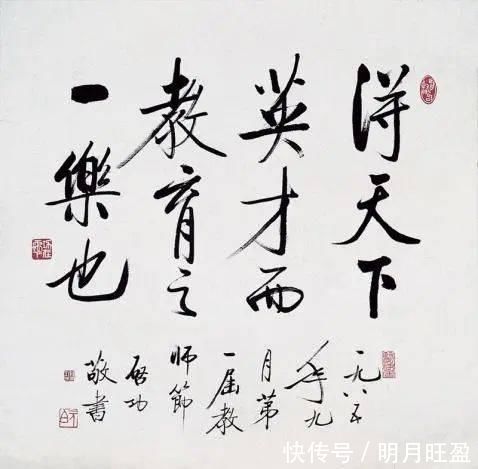 得天下
英才而
教育之
一樂也
一九八五
年九
月第
一届教
師節
啟功
敬書
快传号 / 明月旺盈